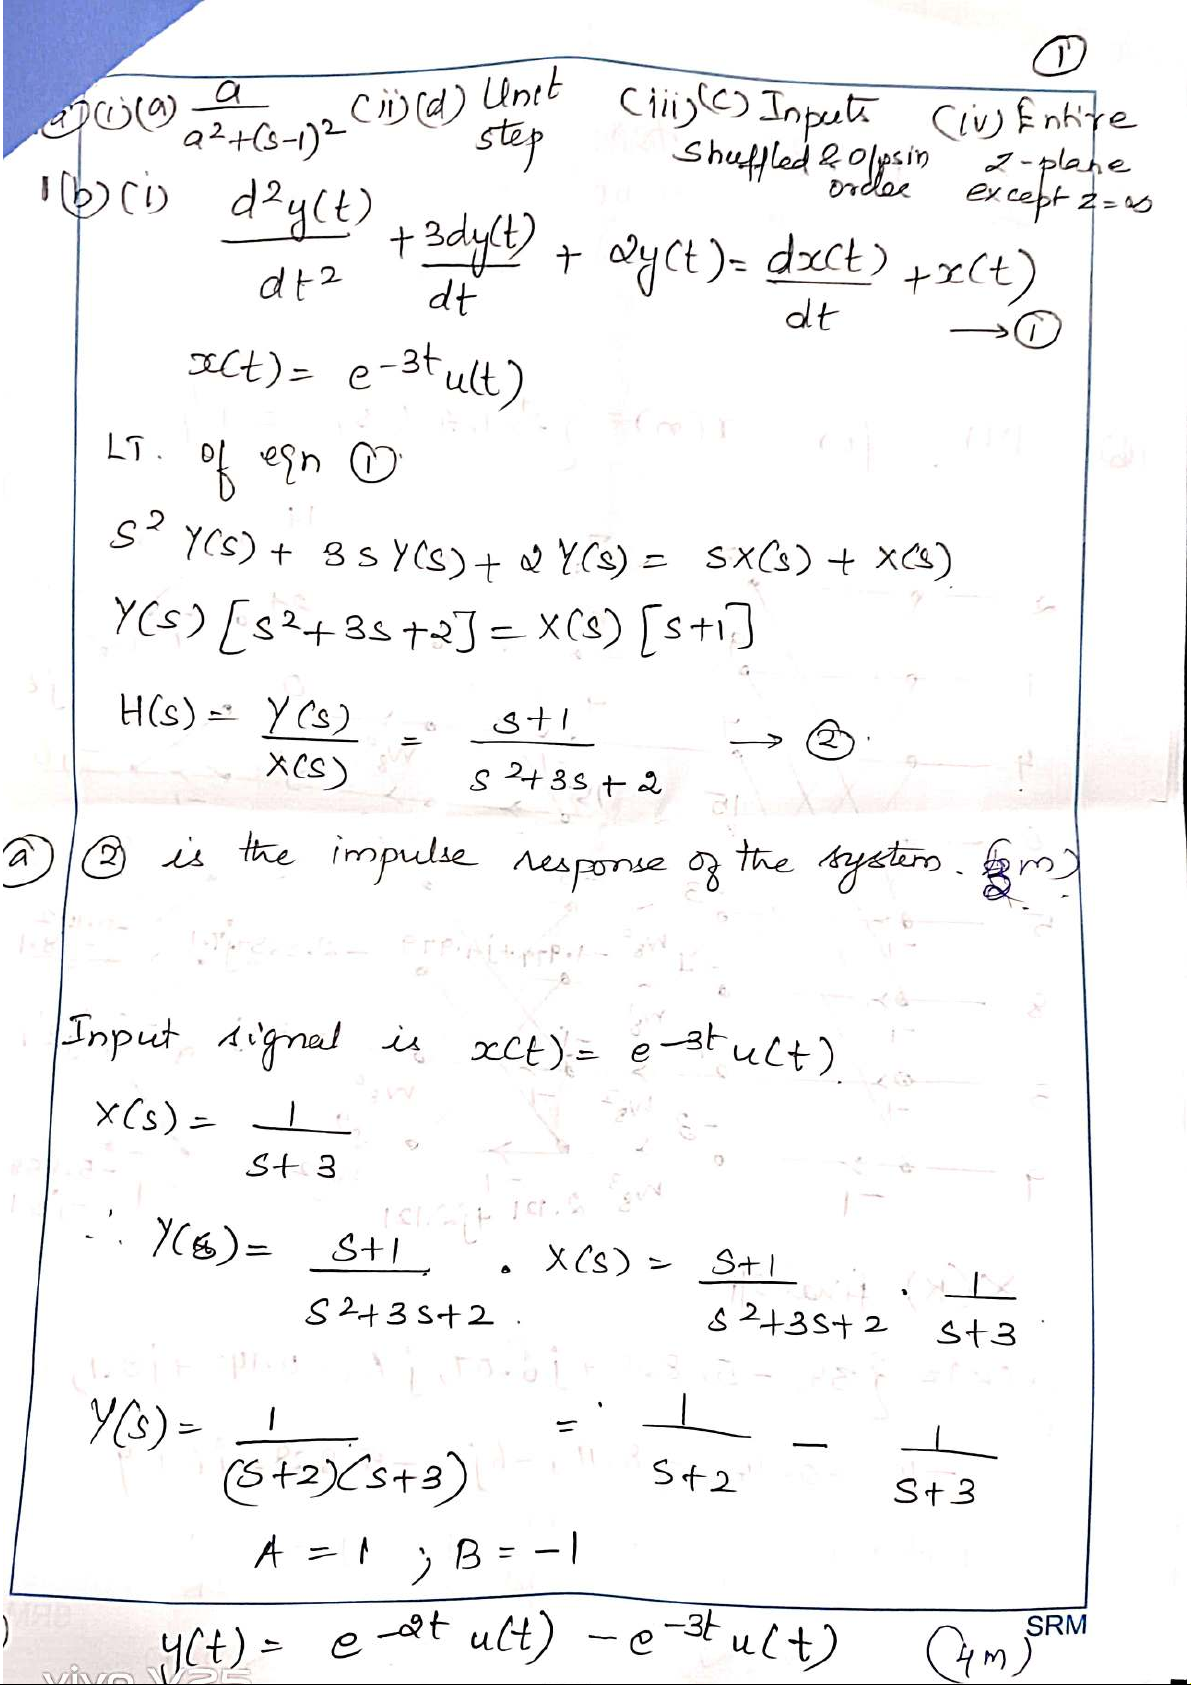 ①
a) (i) (a) a / a²+(s-1)² (ii) (d) Unit step (iii) (c) Inputs Shuffled & O/ps in order (iv) Entire z-plane except z=∞
1(b) (i) d²y(t)/dt² + 3dy(t)/dt + 2y(t) = dx(t)/dt + x(t) → ①
x(t) = e^-3t u(t)
LT. of eqn ①
S² Y(s) + 3s Y(s) + 2 Y(s) = SX(s) + X(s)
Y(s) [s²+3s+2] = X(s) [s+1]
H(s) = Y(s)/X(s) = s+1 / s²+3s+2 → ②
ⓐ ② is the impulse response of the system. (2m)
Input signal is x(t) = e^-3t u(t)
X(s) = 1 / s+3
∴ Y(s) = s+1 / s²+3s+2 . X(s) = s+1 / s²+3s+2 . 1 / s+3
Y(s) = 1 / (s+2)(s+3) = 1 / s+2 − 1 / s+3
A = 1 ; B = -1
SRM
y(t) = e^-2t u(t) − e^-3t u(t) (4m)
vivo Y25